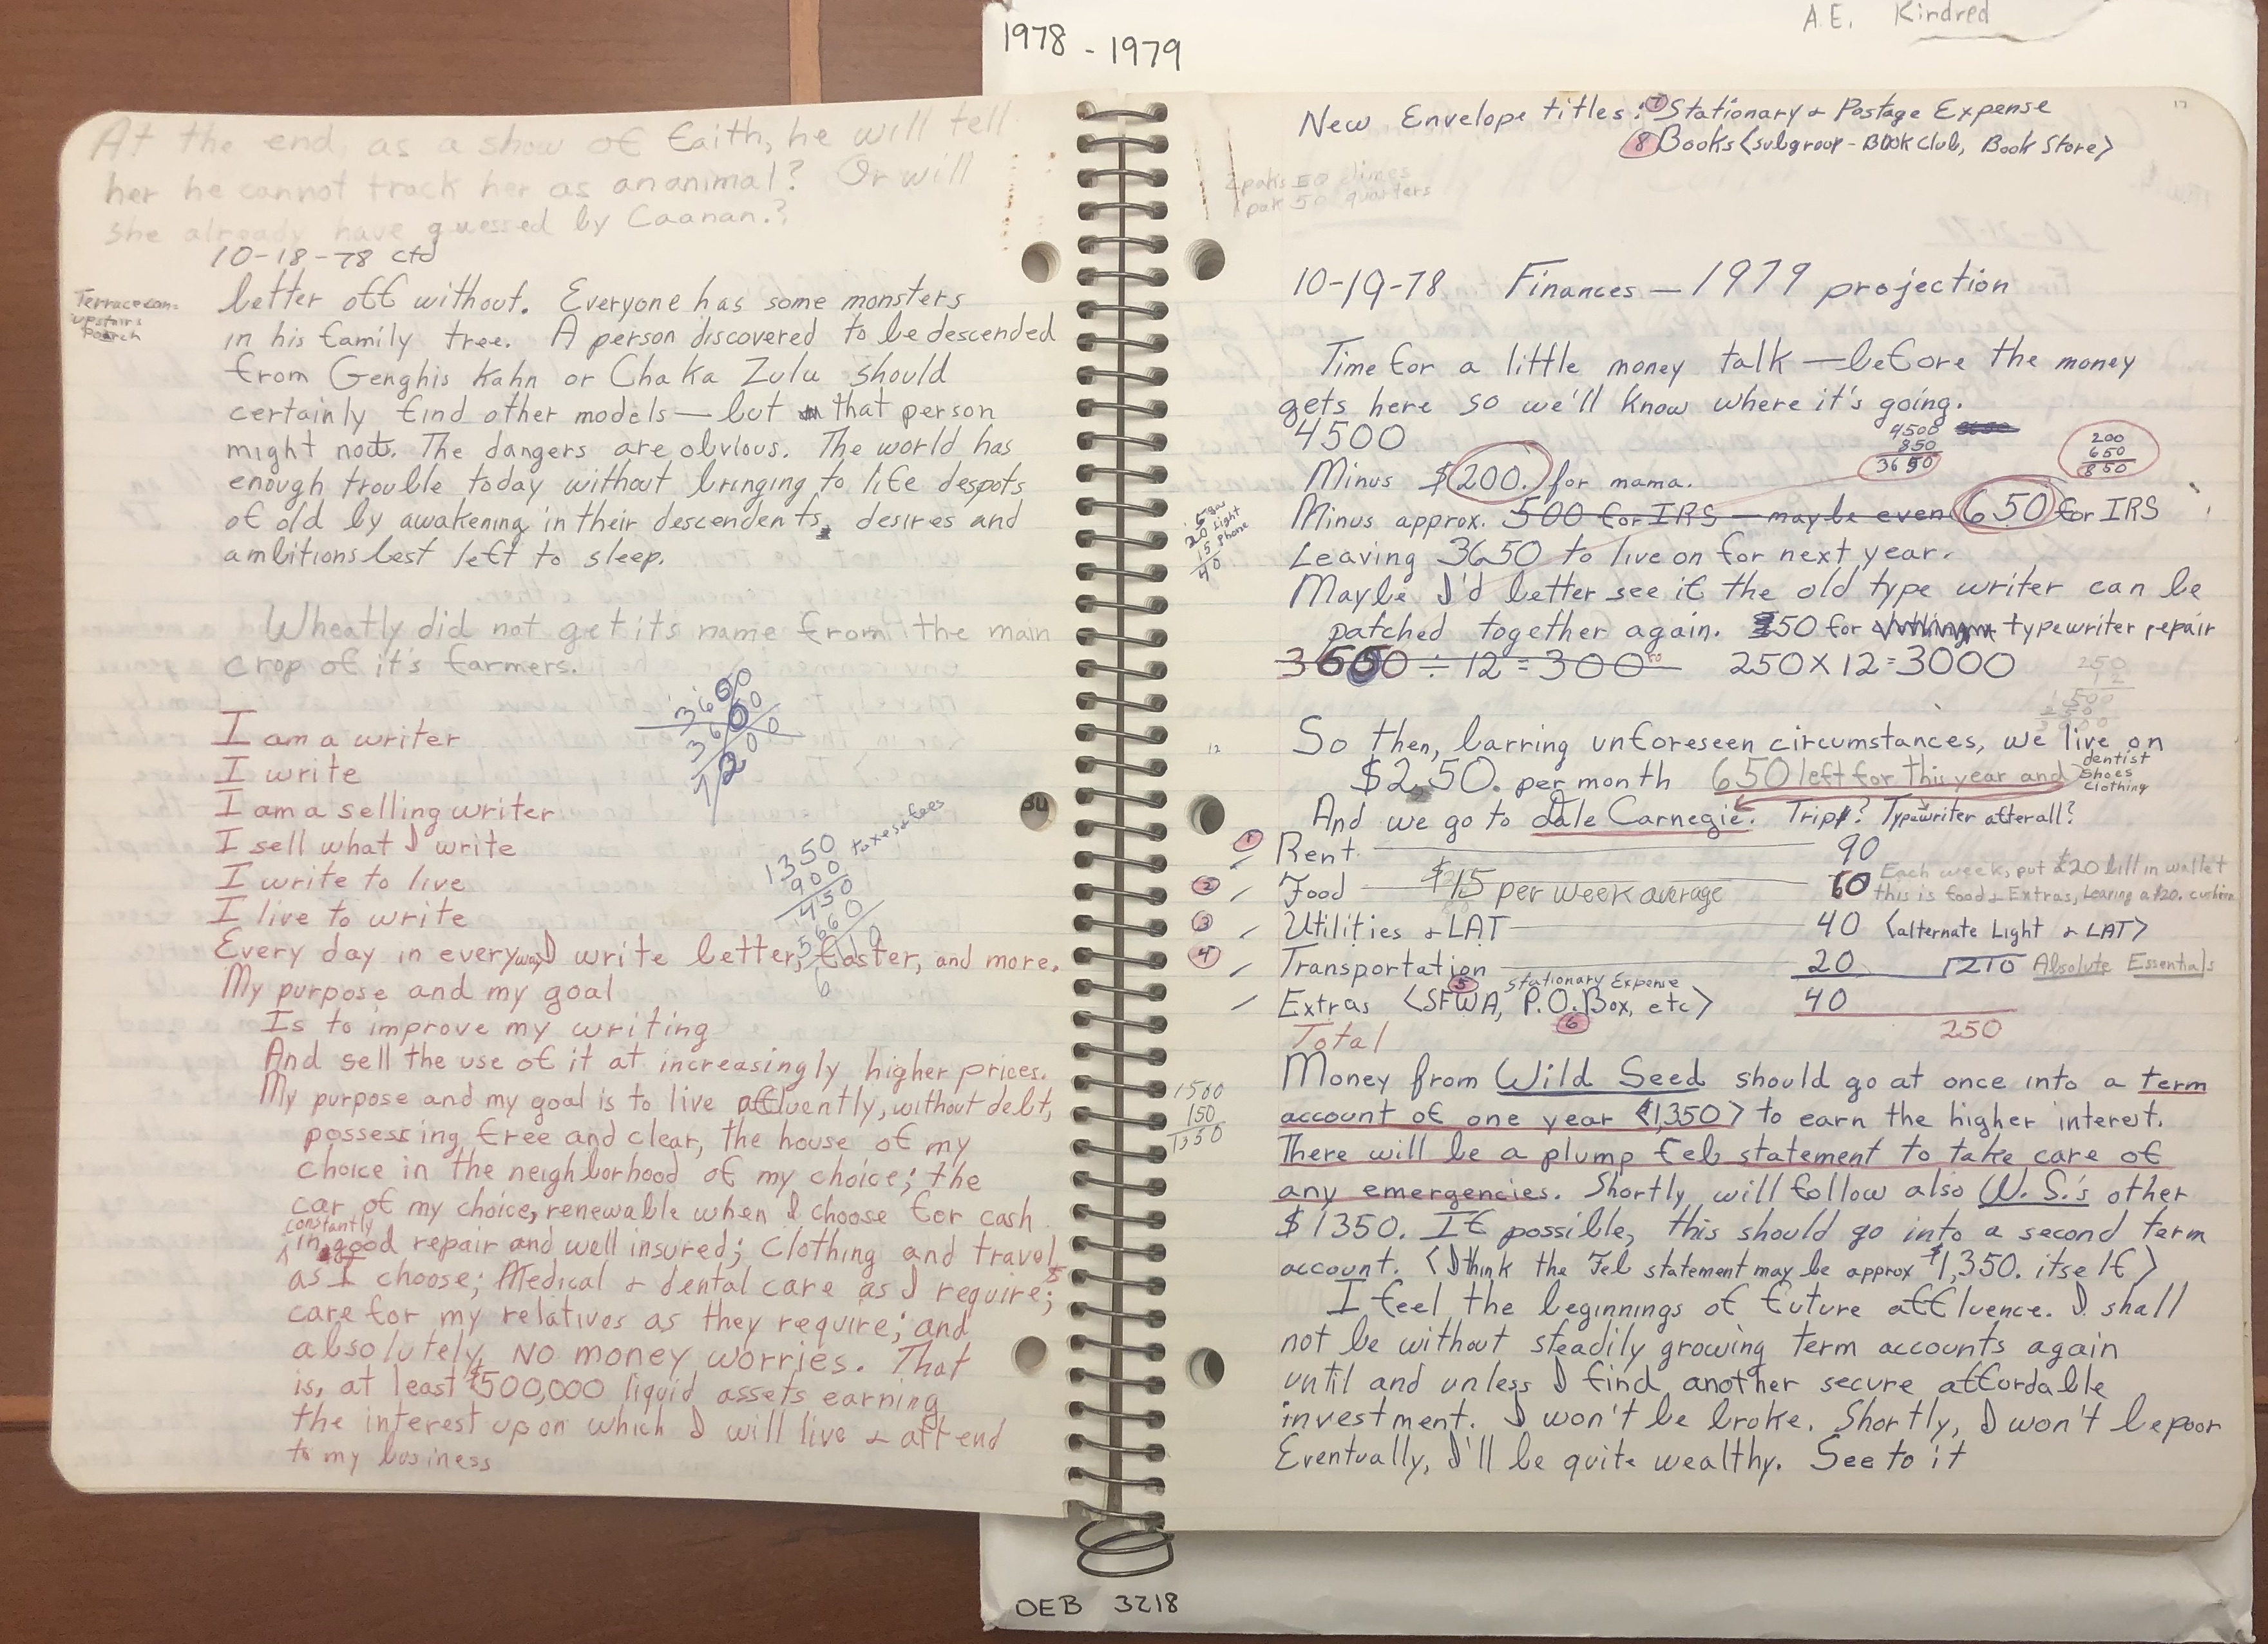 1978 - 1979
A.E. Kindred
At the end, as a show of faith, he will tell
her he cannot track her as an animal? Or will
she already have guessed by Caanan.?
10-18-78 ctd
Terrace con-
upstairs
Porch
better off without. Everyone has some monsters
in his family tree. A person discovered to be descended
from Genghis Kahn or Chaka Zulu should
certainly find other models — but that person
might not. The dangers are obvious. The world has
enough trouble today without bringing to life despots
of old by awakening in their descendents, desires and
ambitions best left to sleep.
Wheatly did not get its name from the main
crop of it's farmers.
3600
3600
7200
I am a writer
I write
I am a selling writer
I sell what I write
I write to live
I live to write
1350 taxes & fees
900
450
Every day in every way I write better, faster, and more.
My purpose and my goal
Is to improve my writing
And sell the use of it at increasingly higher prices.
My purpose and my goal is to live affluently, without debt,
possessing free and clear, the house of my
choice in the neighborhood of my choice; the
car of my choice, renewable when I choose for cash
constantly
in good repair and well insured; Clothing and travel
as I choose; Medical & dental care as I require;
care for my relatives as they require; and
absolutely, NO money worries. That
is, at least $500,000 liquid assets earning
the interest upon which I will live & attend
to my business
New Envelope titles: 7 Stationary & Postage Expense
8 Books <subgroup - Book Club, Book Store>
2 paks 50 dimes
1 pak 50 quarters
10-19-78 Finances — 1979 projection
Time for a little money talk — before the money
gets here so we'll know where it's going.
4500
4500
850
3650
200
650
850
Minus $200. for mama.
5 gas
20 light
15 phone
40
Minus approx. 500 for IRS — maybe even 650 for IRS
Leaving 3650 to live on for next year.
Maybe I'd better see if the old type writer can be
patched together again. $50 for typewriter repair
3600 ÷ 12 = 300 250 X 12 = 3000
250
12
500
250
3000
12
So then, barring unforeseen circumstances, we live on
$250. per month 650 left for this year and
dentist
Shoes
Clothing
And we go to Dale Carnegie. Trip? Typewriter after all?
1 Rent 90
2 Food $15 per week average 60
Each week, put $20 bill in wallet
this is food & Extras, leaving a $20. cushion
3 Utilities & LAT 40 <alternate Light & LAT>
4 Transportation 20 210 Absolute Essentials
5 stationary Expense
Extras <SFWA, P.O. Box, etc> 40
6
Total 250
Money from Wild Seed should go at once into a term
1500
150
1350
account of one year <1,350> to earn the higher interest.
There will be a plump Feb statement to take care of
any emergencies. Shortly will follow also W. S.'s other
$1350. If possible, this should go into a second term
account. <I think the Feb statement may be approx $1,350. itself>
I feel the beginnings of future affluence. I shall
not be without steadily growing term accounts again
until and unless I find another secure affordable
investment. I won't be broke. Shortly, I won't be poor
Eventually, I'll be quite wealthy. See to it
OEB 3218